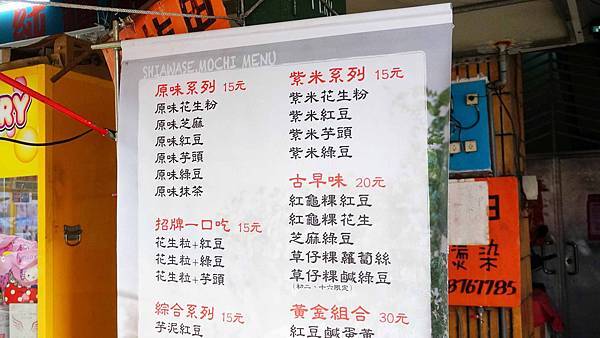 SHIAWASE MOCHI MENU
原味系列 15元
原味花生粉
原味芝麻
原味紅豆
原味芋頭
原味綠豆
原味抹茶
招牌一口吃 15元
花生粒+紅豆
花生粒+綠豆
花生粒+芋頭
綜合系列 15元
芋泥紅豆
紫米系列 15元
紫米花生粉
紫米紅豆
紫米芋頭
紫米綠豆
古早味 20元
紅龜粿紅豆
紅龜粿花生
芝麻綠豆
草仔粿蘿蔔絲
草仔粿鹹綠豆
(初二、十六限定)
黃金組合 30元
紅豆鹹蛋黃
RY
染
8767785